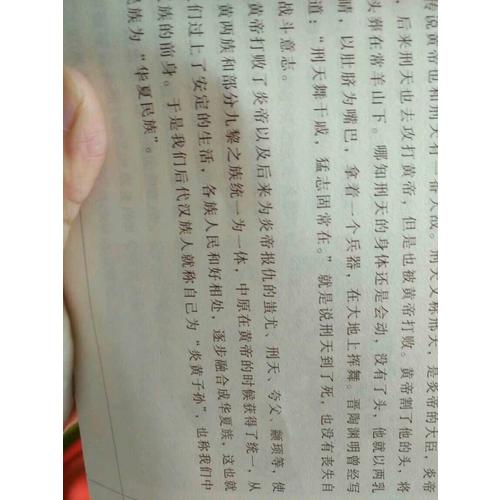 传说黄帝也和刑天有一番大战。刑天又称邢天，是炎帝的大臣，炎帝
，后来刑天也去攻打黄帝，但是也被黄帝打败。黄帝割了他的头，将
头葬在常羊山下。哪知刑天的身体还是会动，没有了头，他就以两乳
睛，以肚脐为嘴巴，拿着一个兵器，在大地上挥舞。晋陶渊明曾经写
道：“刑天舞干戚，猛志固常在。”就是说刑天到了死，也没有丧失自
战斗意志。
黄帝打败了炎帝以及后来为炎帝报仇的蚩尤、刑天、夸父、颛顼等，使
黄两族和部分九黎之族统一为一体，中原在黄帝的时候获得了统一，从
们过上了安定的生活，各族人民和好相处，逐步融合成华夏族，这也就
族的前身。于是我们后代汉族人就称自己为“炎黄子孙”，也称我们中
民族为“华夏民族”。